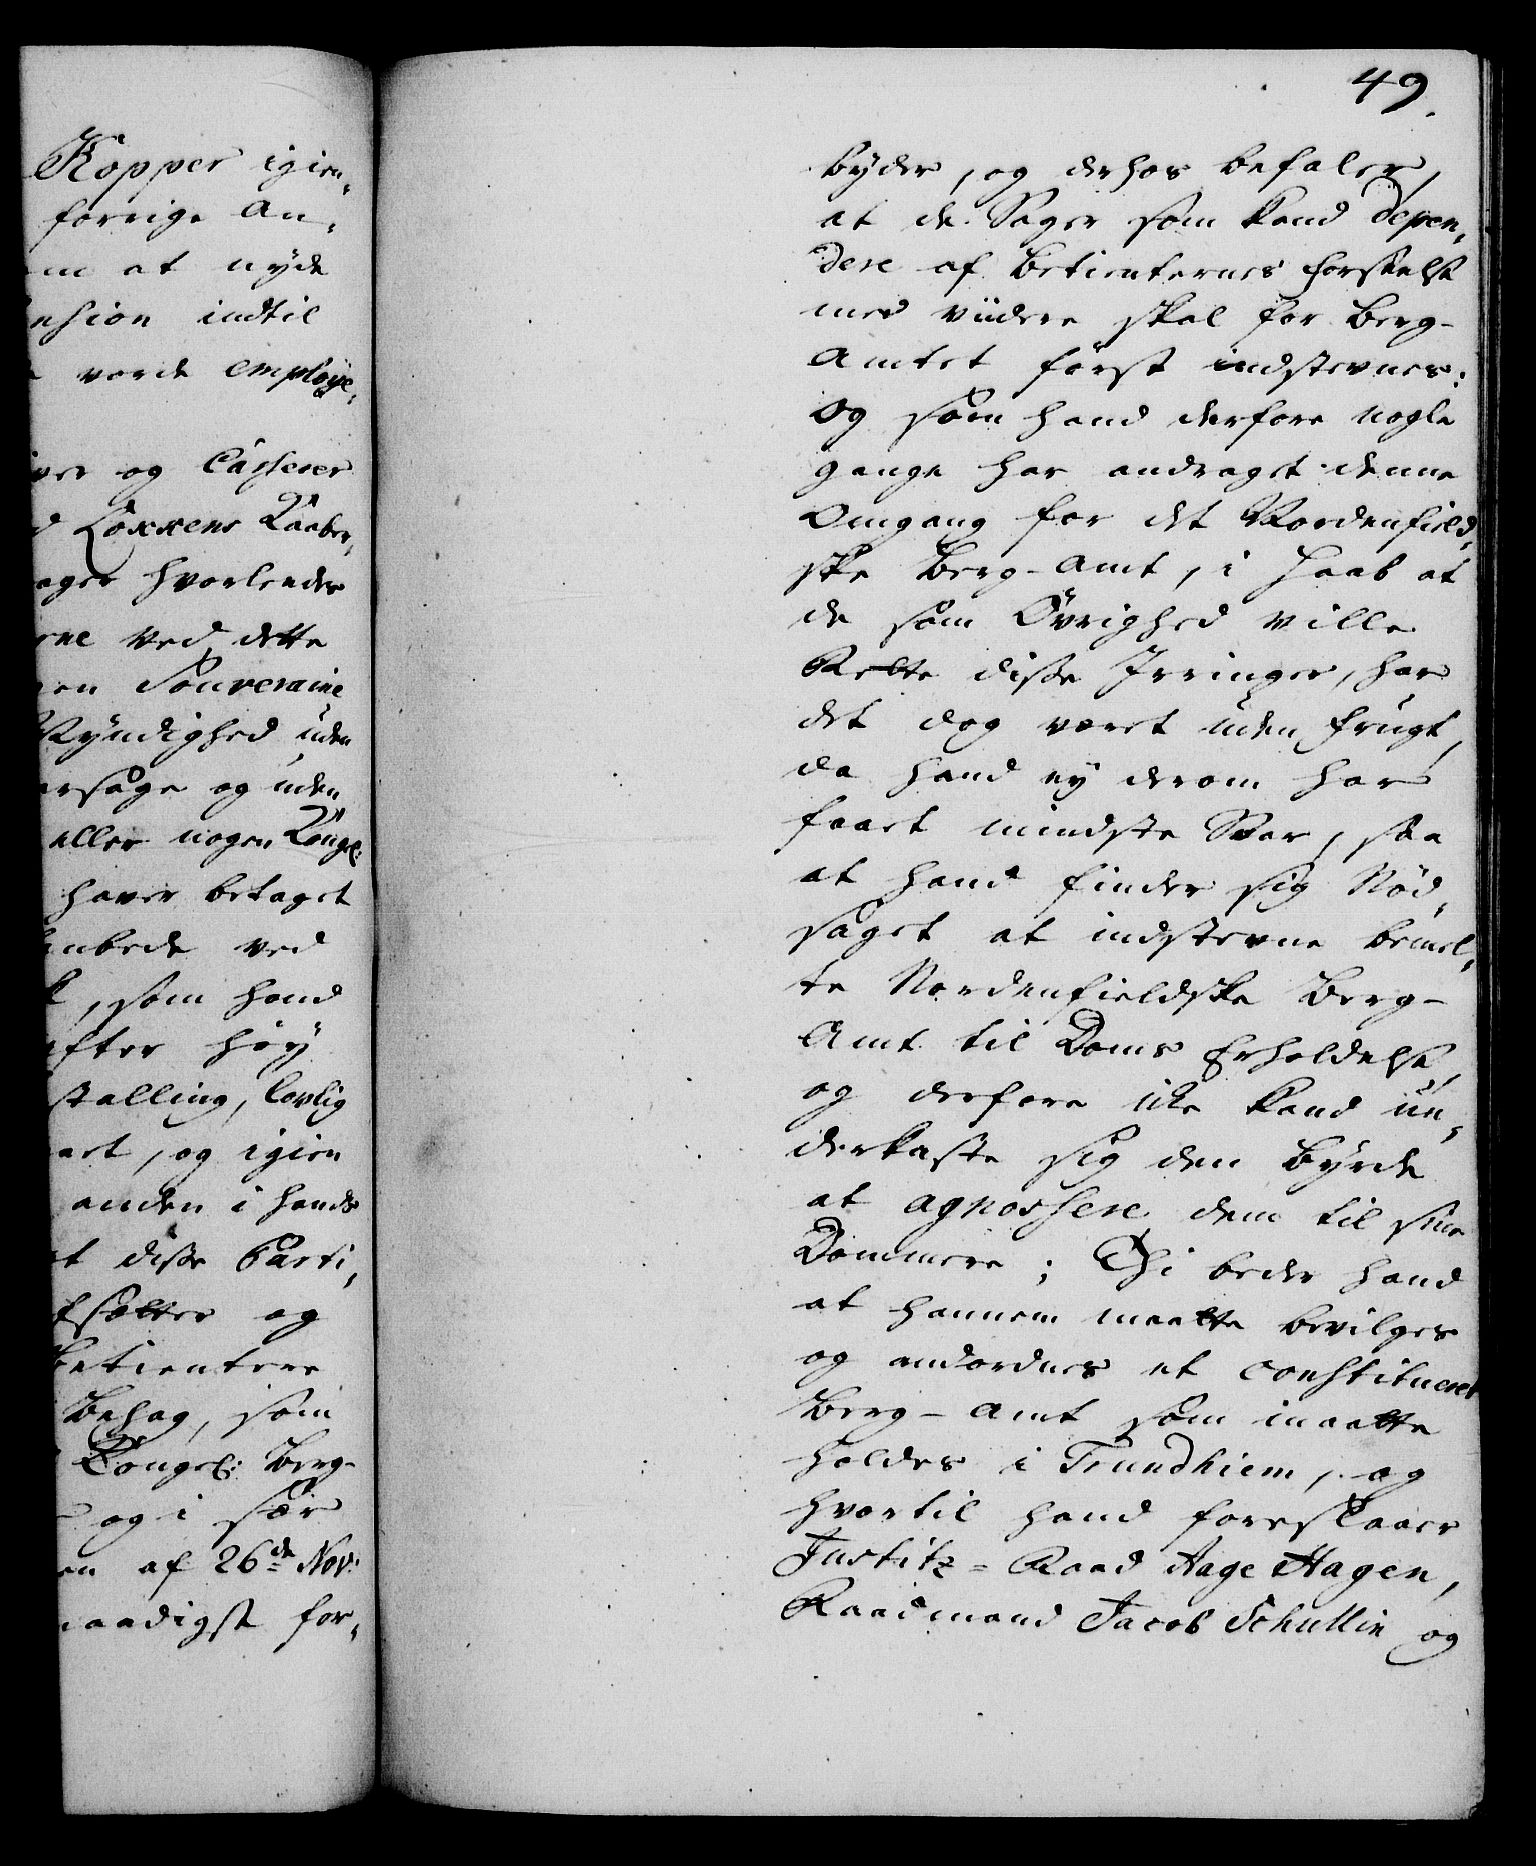 Kopper igien,
forrige An,
at nyde
nsion indtil
vorde employe,
og Casserer
Løxxens Kaaber,
hvorledes
ved dette
Souveraine
Myndighed uden
og uden
eller nogen Kongel:
haver betaget
ved
, som hand
efter höy
stalling, lovlig
, og igien
anden i hands
disse Parti,
og
betientere
Behag, som
Kongel: Berg-
og i sær
af 26de Nov:
naadigst for,
49.
byder, og derhos befaler,
at de Sager som kand depen,
dere af Betienternes forseelse
med viidere skal for Berg-
Amtet først indstevnes:
Og som hand derfore nogle
gange har andraget denne
Omgang for det Nordenfield,
ske Berg-Amt, i Haab at
de som Övrighed ville
Rette disse Irringer, har
det dog været uden Frugt,
da hand ey derom har
faaet mindste Svar, saa
at hand finder sig Nöd,
saget at indstevne bemel,
te Nordenfieldske Berg-
Amt til Doms Erholdelse,
og derfore ikke kand un,
derkaste sig den Byrde
at agnoscere dem til sine
Dommere; Thi beder hand
at hannem maatte bevilges
og andordnes et constitueret
Berg-Amt som maatte
holdes i Trundhiem, og
hvortil hand foreslaaer
Justitz=Raad Aage Hagen,
Raadmand Jacob Schullin og